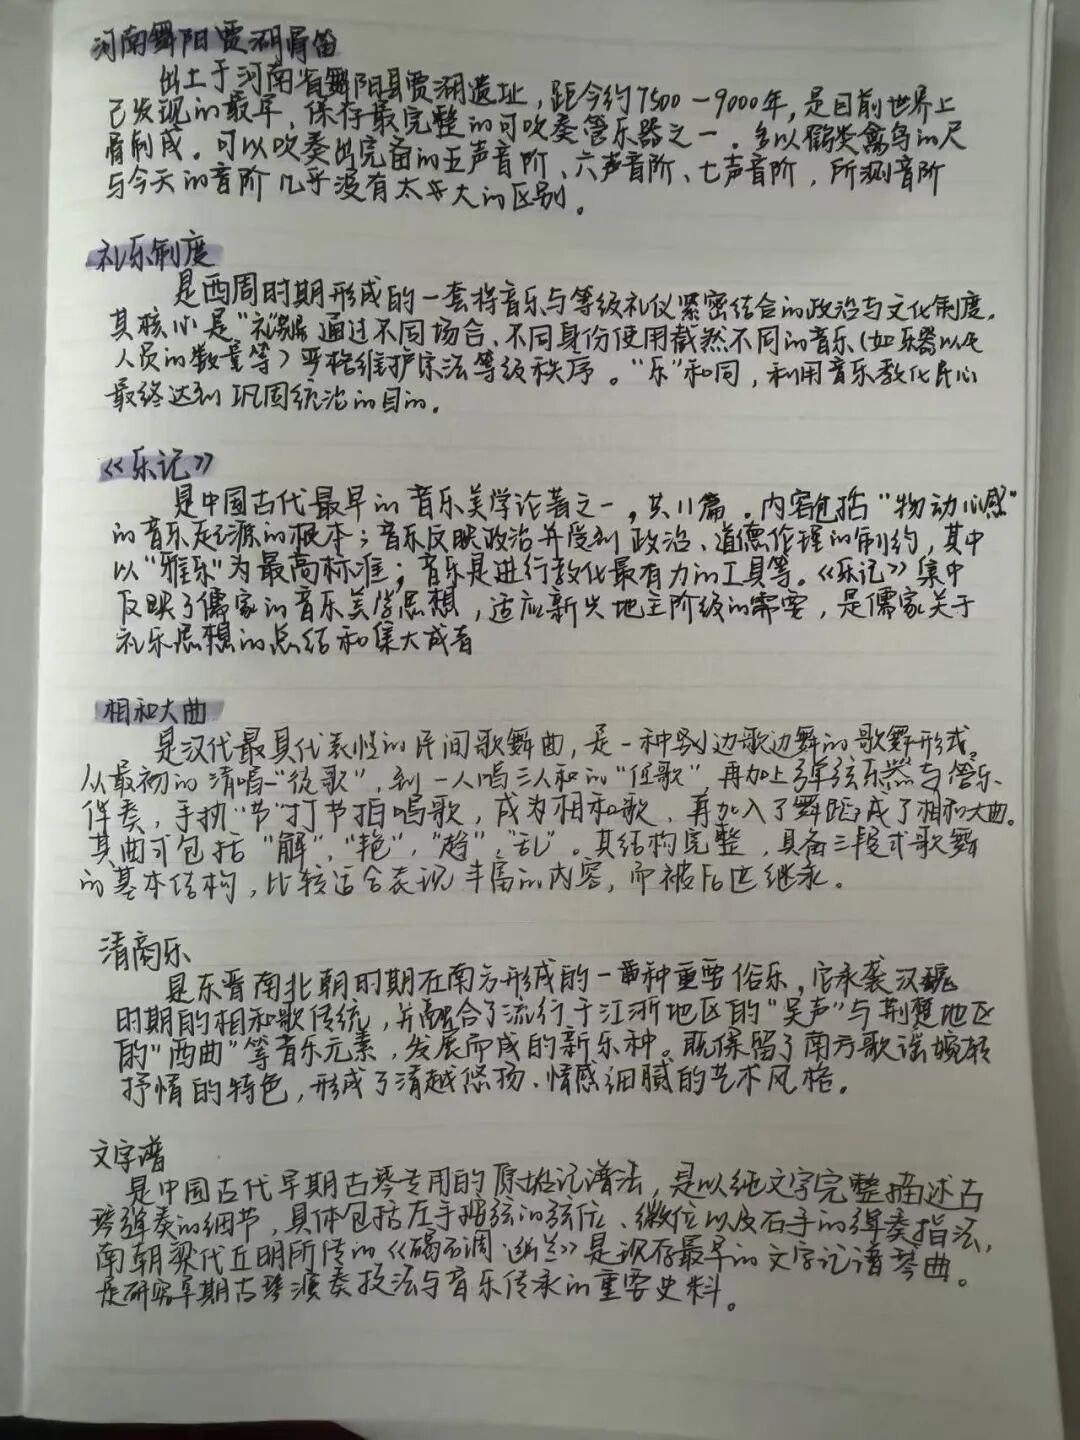 河南舞阳贾湖骨笛
出土于河南省舞阳县贾湖遗址，距今约7500－9000年，是目前世界上
已发现的最早，保存最完整的可吹奏管乐器之一。多以鹤类禽鸟的尺
骨制成。可以吹奏出完备的五声音阶、六声音阶、七声音阶，所测音阶
与今天的音阶几乎没有太大的区别。
礼乐制度
是西周时期形成的一套将音乐与等级礼仪紧密结合的政治与文化制度。
其核心是"礼"通过不同场合、不同身份使用截然不同的音乐（如乐器以
人员的数量等）严格维护宗法等级秩序。"乐"和同，利用音乐教化民心
最终达到巩固统治的目的。
《乐记》
是中国古代最早的音乐美学论著之一，共11篇。内容包括"物动心感"
的音乐起源的根本；音乐反映政治并受到政治、道德伦理的制约，其中
以"雅乐"为最高标准；音乐是进行教化最有力的工具等。《乐记》集中
反映了儒家的音乐美学思想，适应新兴地主阶级的需要，是儒家关于
礼乐思想的总结和集大成者
相和大曲
是汉代最具代表性的民间歌舞曲，是一种边歌边舞的歌舞形式。
从最初的清唱"徒歌"，到一人唱三人和的"但歌"，再加上弹弦乐器与管乐
伴奏，手执"节"打节拍唱歌，成为相和歌，再加入了舞蹈成了相和大曲。
其曲式包括"解"，"艳"，"趋"，"乱"。其结构完整，具备三段式歌舞
的基本结构，比较适合表现丰富的内容，而被后世继承。
清商乐
是东晋南北朝时期在南方形成的一种重要俗乐，它承袭汉魏
时期的相和歌传统，并融合了流行于江浙地区的"吴声"与荆楚地区
的"西曲"等音乐元素，发展而成的新乐种。既保留了南方歌谣婉转
抒情的特色，形成了清越悠扬、情感细腻的艺术风格。
文字谱
是中国古代早期古琴专用的原始记谱法，是以纯文字完整描述古
琴弹奏的细节，具体包括左手按弦的弦位、徽位以及右手的弹奏指法，
南朝梁代丘明所传的《碣石调·幽兰》是现存最早的文字记谱琴曲。
是研究早期古琴演奏技法与音乐传承的重要史料。